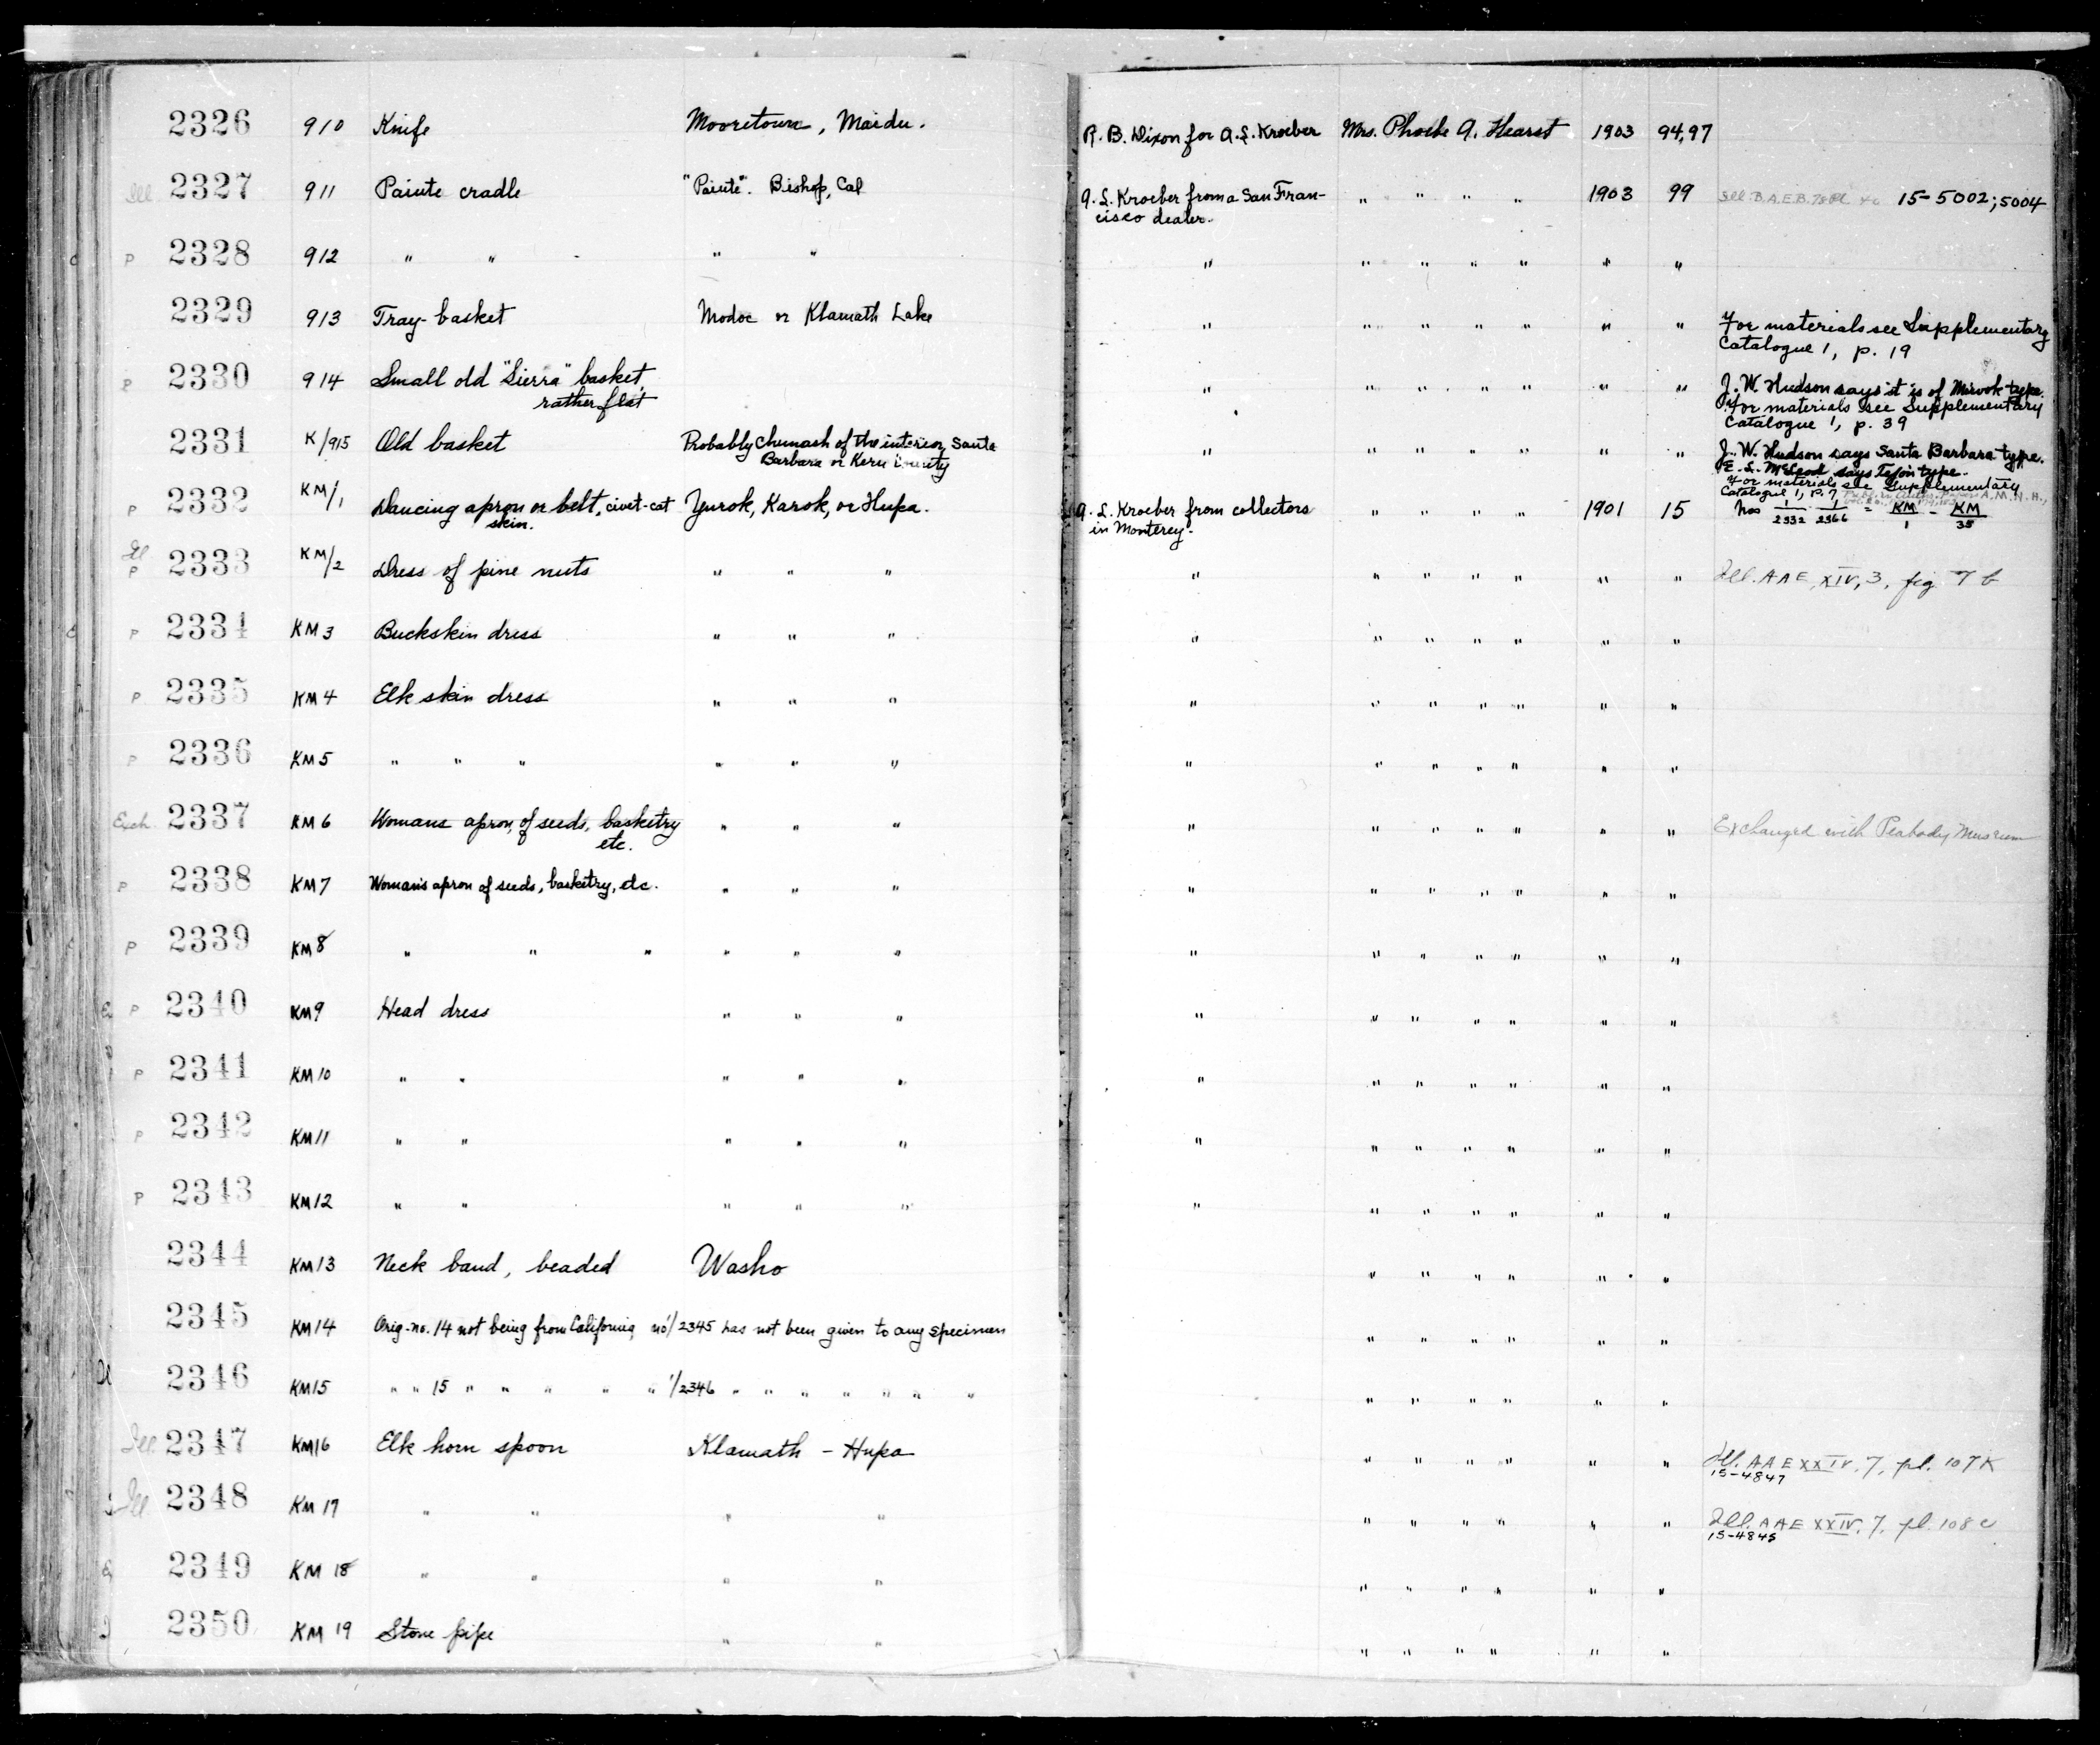 2326 910 Knife Mooretown, Maidu. R. B. Dixon for A. L. Kroeber Mrs. Phoebe A. Hearst 1903 94,97
Ill 2327 911 Paiute cradle "Paiute". Bishop, Cal A. L. Kroeber from a San Fran- " " " " 1903 99 Ill. B.A.E.B. 78 15-5002; 5004
cisco dealer.
P 2328 912 " " " " " " " " " " "
2329 913 Tray-basket Modoc or Klamath Lake " " " " " " " For materials see Supplementary
Catalogue 1, p. 19
P 2330 914 Small old "Sierra" basket, " " " " " " " J. W. Hudson says it is of Miwok type.
rather flat For materials see Supplementary
Catalogue 1, p. 39
2331 K/915 Old basket Probably Chumash of the interior, Santa " " " " " " " J. W. Hudson says Santa Barbara type.
Barbara or Kern County E. L. McLeod says Tejon type.
For materials see Supplementary
Catalogue 1, p. 7 A.M.N.H.,
P 2332 KM/1 Dancing apron or belt, civet-cat Yurok, Karok, or Hupa. A. L. Kroeber from collectors " " " " 1901 15 Nos 1/2332 1/2366 = KM/1 - KM/35
skin. in Monterey.
Ill
P 2333 KM/2 Dress of pine nuts " " " " " " " " " " Ill. AAE XIV, 3, fig 7 b
P 2334 KM3 Buckskin dress " " " " " " " " " "
P 2335 KM4 Elk skin dress " " " " " " " " " "
P 2336 KM5 " " " " " " " " " " " " "
Exch. 2337 KM6 Womans apron, of seeds, basketry " " " " " " " " " " Exchanged with Peabody Museum
etc.
P 2338 KM7 Woman's apron of seeds, basketry, etc. " " " " " " " " " "
P 2339 KM8 " " " " " " " " " " " " "
P 2340 KM9 Head dress " " " " " " " " " "
P 2341 KM10 " " " " " " " " " " " "
P 2342 KM11 " " " " " " " " " " " "
P 2343 KM12 " " " " " " " " " " " "
2344 KM13 Neck band, beaded Washo " " " " " "
2345 KM14 Orig. no. 14 not being from California, no 1/2345 has not been given to any specimen " " " " " "
2346 KM15 " " 15 " " " " " 1/2346 " " " " " " " " " " " " "
Ill 2347 KM16 Elk horn spoon Klamath - Hupa " " " " " " Ill. AAE XXIV, 7, pl. 107K
15-4847
Ill 2348 KM 17 " " " " " " " " " " Ill. AAE XXIV, 7, pl. 108c
15-4845
2349 KM 18 " " " " " " " " " "
2350 KM 19 Stone pipe " " " " " " " "